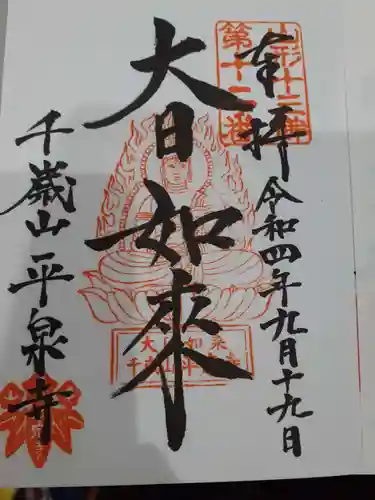 奉拝
令和四年九月十九日
山形十三佛
第十二番
大日如來
大日如來
千歳山平泉寺
千歳山平泉寺